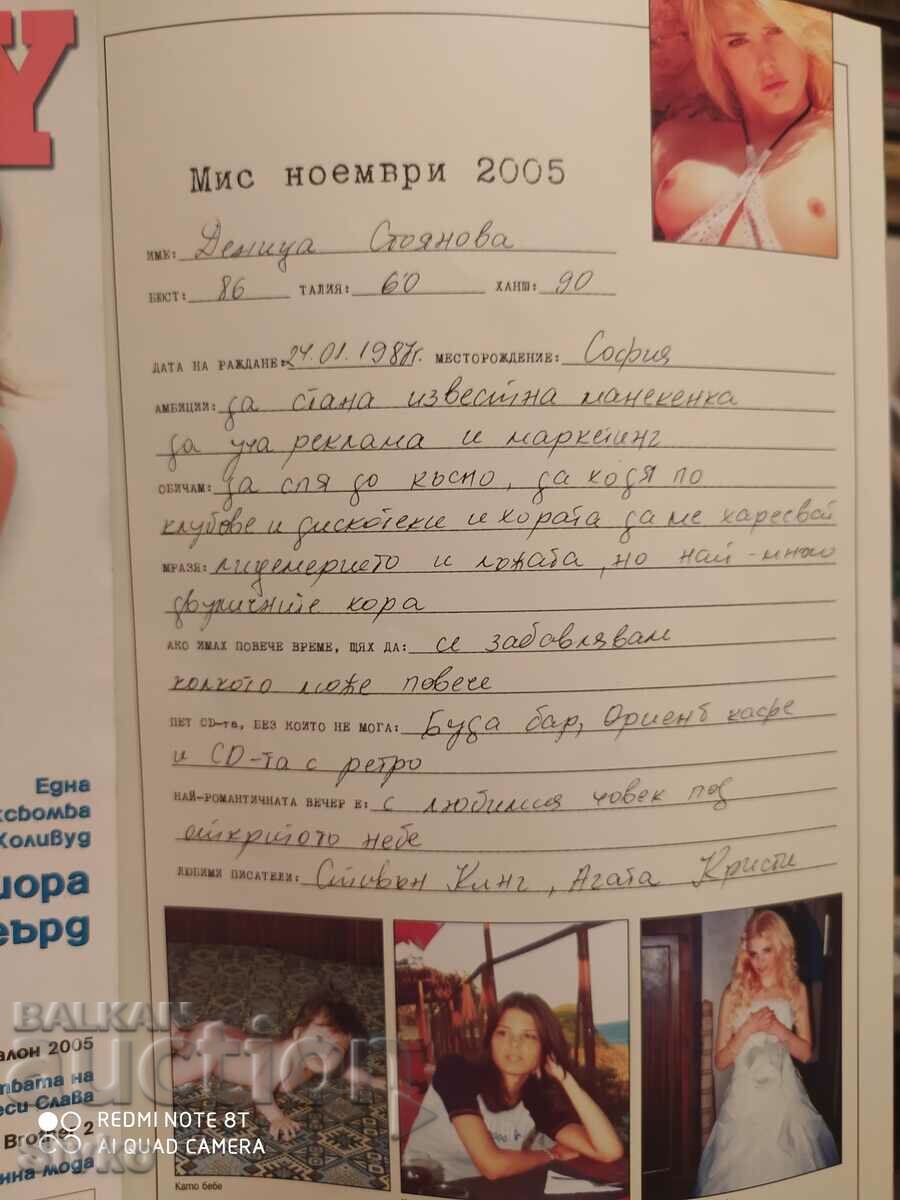 Y
Мис ноември 2005
ИМЕ: Деница Стоянова
БЮСТ: 86 ТАЛИЯ: 60 ХАНШ: 90
ДАТА НА РАЖДАНЕ: 24.01.1987г. МЕСТОРОЖДЕНИЕ: София
АМБИЦИИ: да стана известна манекенка
да уча реклама и маркетинг
ОБИЧАМ: да спя до късно, да ходя по
клубове и дискотеки и хората да ме харесват
МРАЗЯ: лицемерието и лъжата, но най-много
двуличните хора
АКО ИМАХ ПОВЕЧЕ ВРЕМЕ, ЩЯХ ДА: се забавлявам
колкото може повече
ПЕТ CD-та, БЕЗ КОИТО НЕ МОГА: Буда бар, Ориент кафе
и CD-та с ретро
НАЙ-РОМАНТИЧНАТА ВЕЧЕР Е: с любимия човек под
откритото небе
ЛЮБИМИ ПИСАТЕЛИ: Стивън Кинг, Агата Кристи
Една
ксбомба
Холивуд
иора
еърд
алон 2005
твата на
еси Слава
Brother 2
нна мода
Като бебе
BALKAN
auction
REDMI NOTE 8T
AI QUAD CAMERA